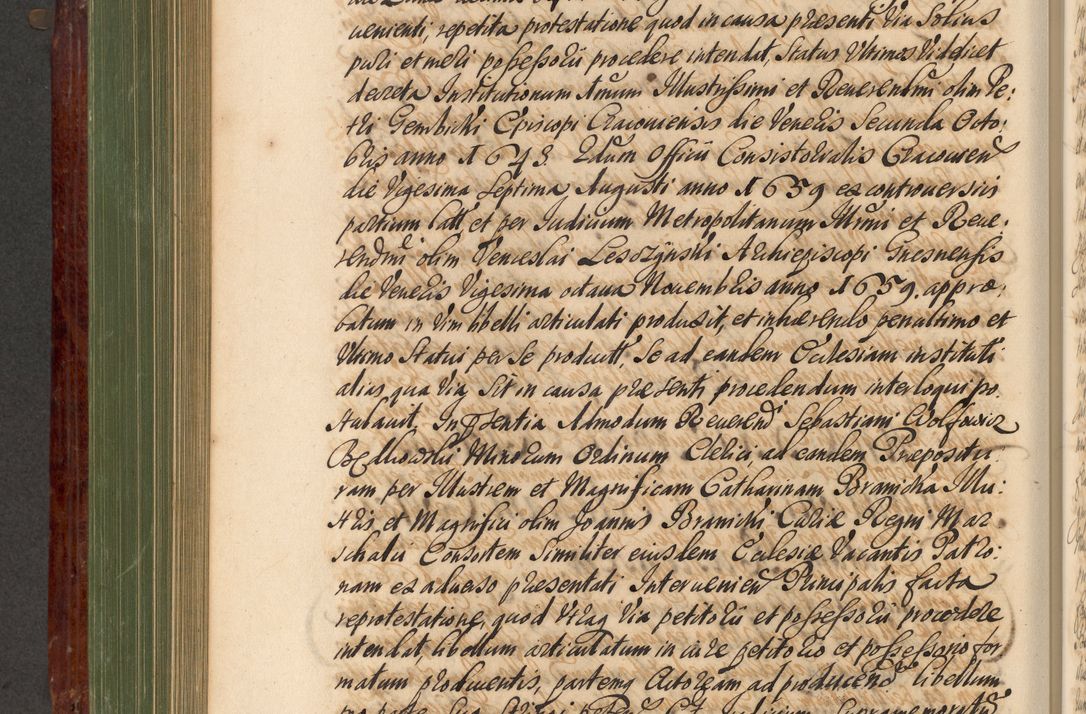 uenienti, repetita protestatione quod in causa præsenti Via Solius
puri et meri possessorii procedere intendit, Status Vltimos Videlicet
decreta Institutionum Imum Illustrissimi et Reuerendmi olim Pe:
tri Gembicki Episcopi Cracouiensis die Veneris Secunda Octo:
bris anno 1643 2dum Officii Consistorialis Cracouien
die Vigesima Septima Augusti anno 1659 ex controuersiis
partium latt, et per Iudicium Metropolitanum Illrmi et Reue:
rendmi olim Venceslai Leszczynski Archiepiscopi Gnesnensis
die Veneris Vigesima octaua Nouembris anno 1659. appro:
batum in Vim libelli articulati produxit, et inhærendo penultimo et
Vltimo Statui per Se product, Se ad eandem Ecclesiam instituti
alias qua Via Sit in causa præsenti procedendum interloqui po
stulauit, In Pсntia Admodum Reuerend Sebastiani Wolfowicz
Minorum Ordinum Clerici, ad eandem Præpositu:
ram per Illustrem et Magnificam Catharinam Branicka Illu:
stris, et Magnifici olim Joannis Branicki Curiæ Regni Mar
schalci Consortem Similiter eiusdem Ecclesiæ Vacantis Patro:
nam ex aduerso præsentati Interuenien Principalis facta
reprotestatione, quod Vtraq Via petitorii et possessorii procedere
intendat, libellum articulatum in iure petitorio et possessorio for
matum producentis, partemq Actoream ad producend libellum